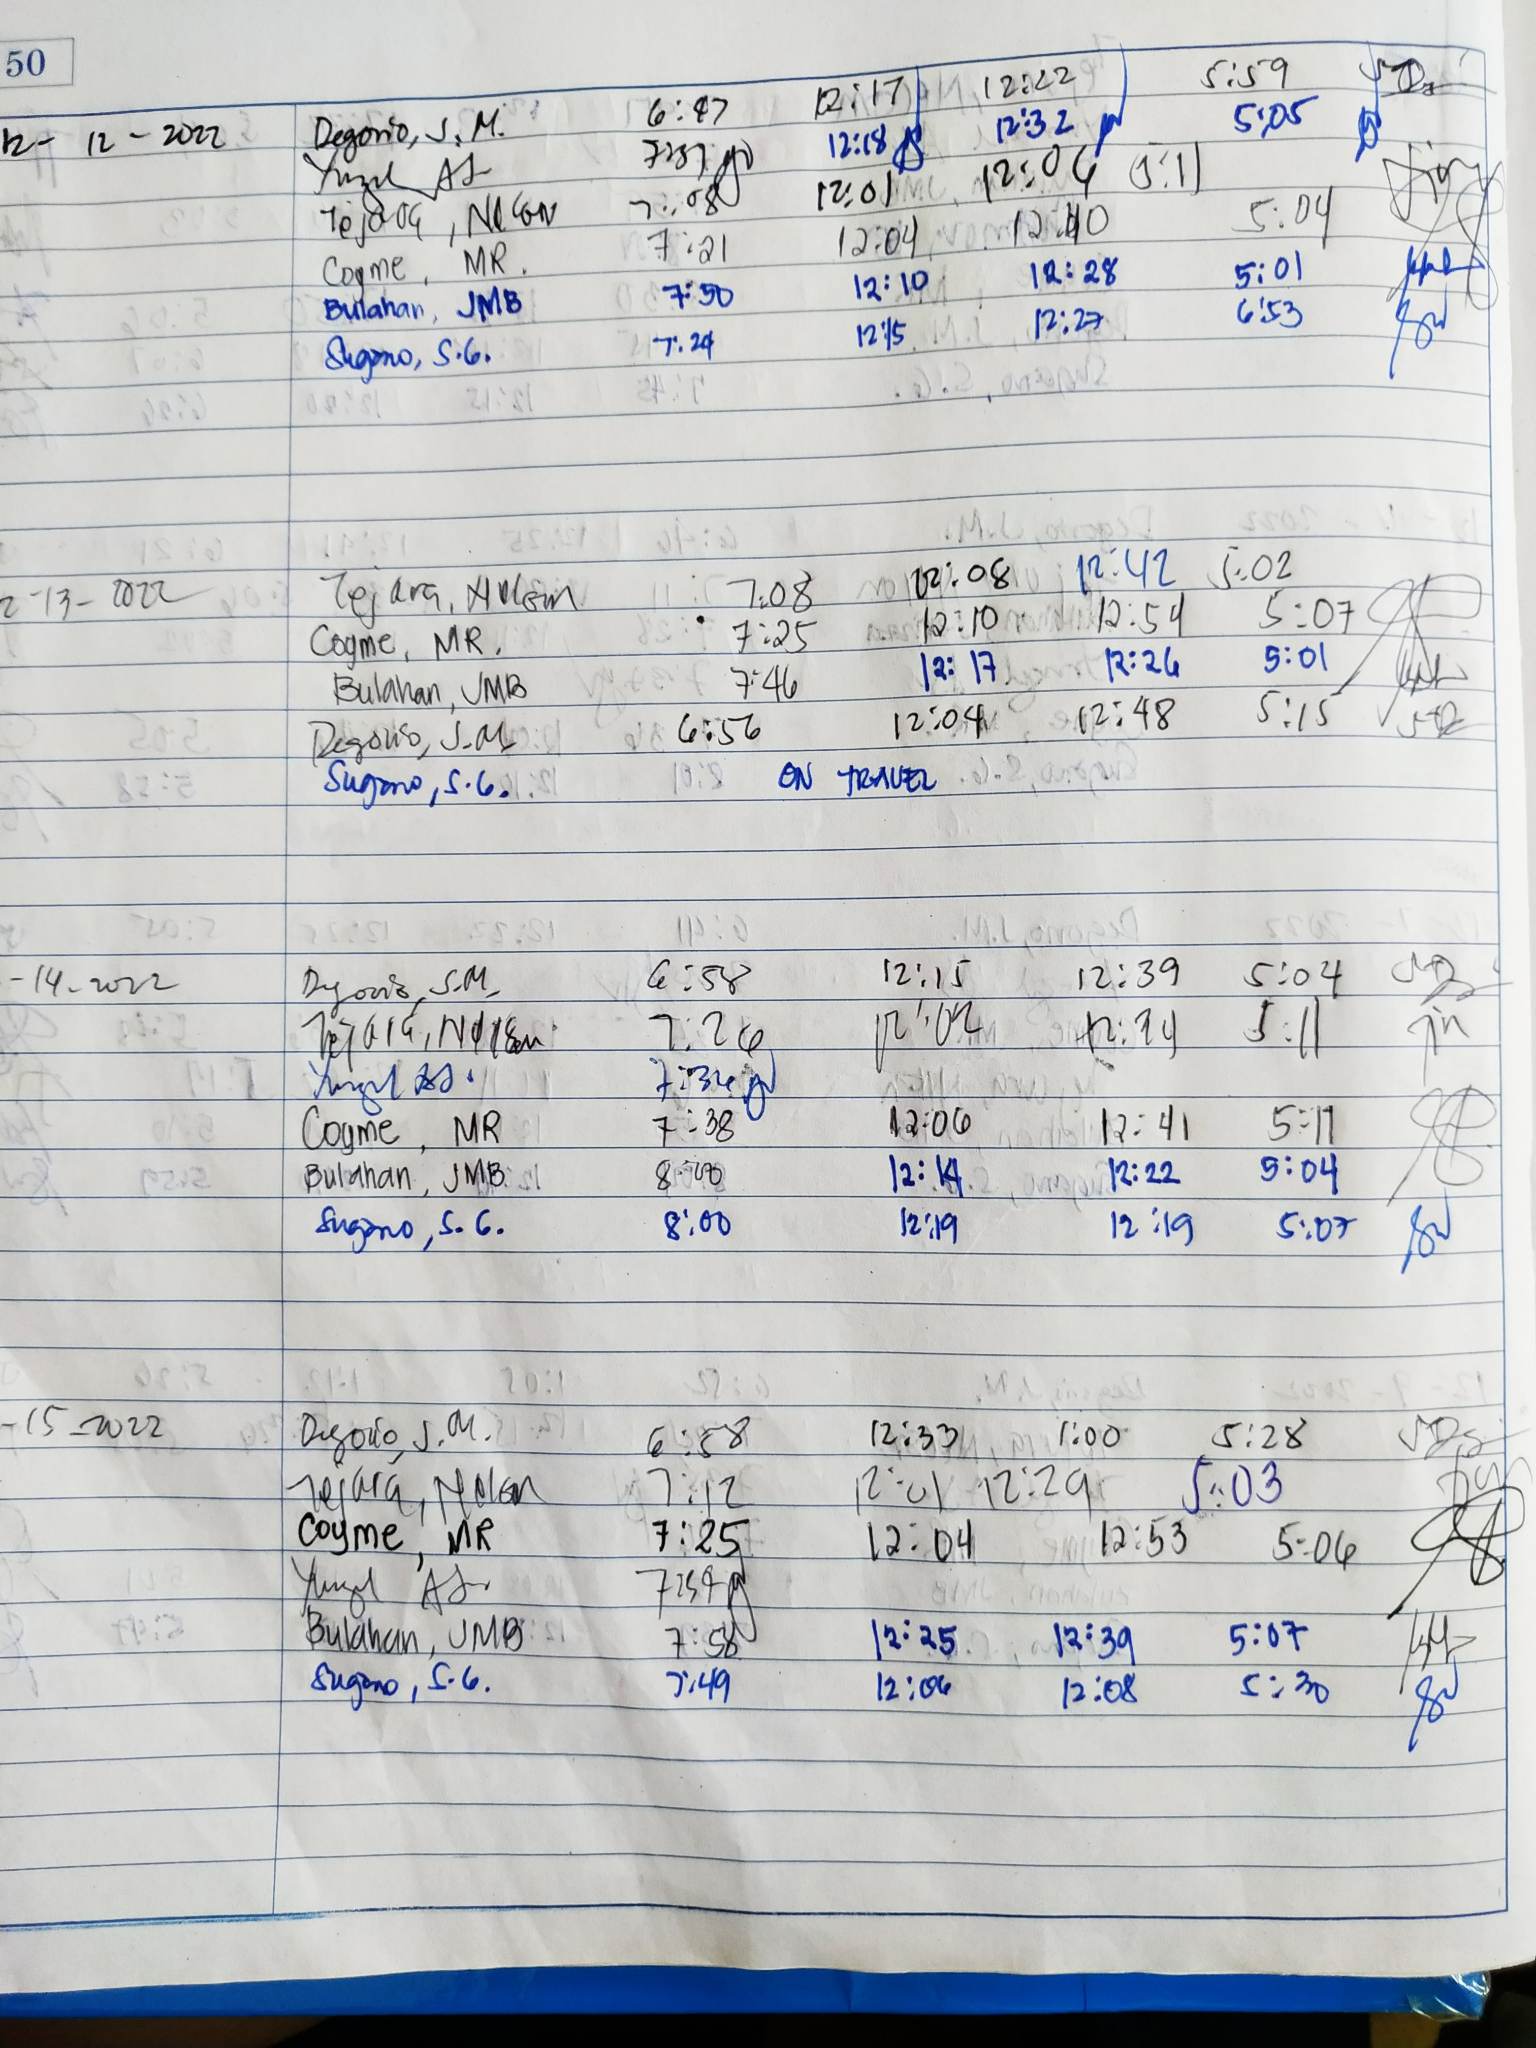 50
12 - 12 - 2022 Degorio, J. M. 6:47 12:17 12:22 5:59
12:18 12:32 5:05
Tejara, Nelson 7:08 12:01 12:04 5:11
Cogme, MR. 7:21 12:04 12:40 5:04
Bulahan, JMB 7:50 12:10 12:28 5:01
Sugano, S.G. 7:24 12:15 12:27 6:53
2-13-2022 Tejara, Nelson 7:08 12:08 12:42 5:02
Cogme, MR. 7:25 12:10 12:54 5:07
Bulahan, JMB 7:46 12:17 12:26 5:01
Degorio, J.M. 6:56 12:04 12:48 5:15
Sugano, S.G. ON TRAVEL
-14-2022 Degorio, J.M. 6:58 12:15 12:39 5:04
Tejara, Nelson 7:26 12:02 12:34 5:11
7:34
Cogme, MR 7:38 12:06 12:41 5:11
Bulahan, JMB 8:00 12:14 12:22 5:04
Sugano, S.G. 8:00 12:19 12:19 5:07
-15-2022 Degorio, J.M. 6:58 12:33 1:00 5:28
Tejara, Nelson 7:12 12:01 12:29 5:03
Cogme, MR 7:25 12:04 12:53 5:06
Bulahan, JMB 7:58 12:25 12:39 5:07
Sugano, S.G. 7:49 12:06 12:08 5:30